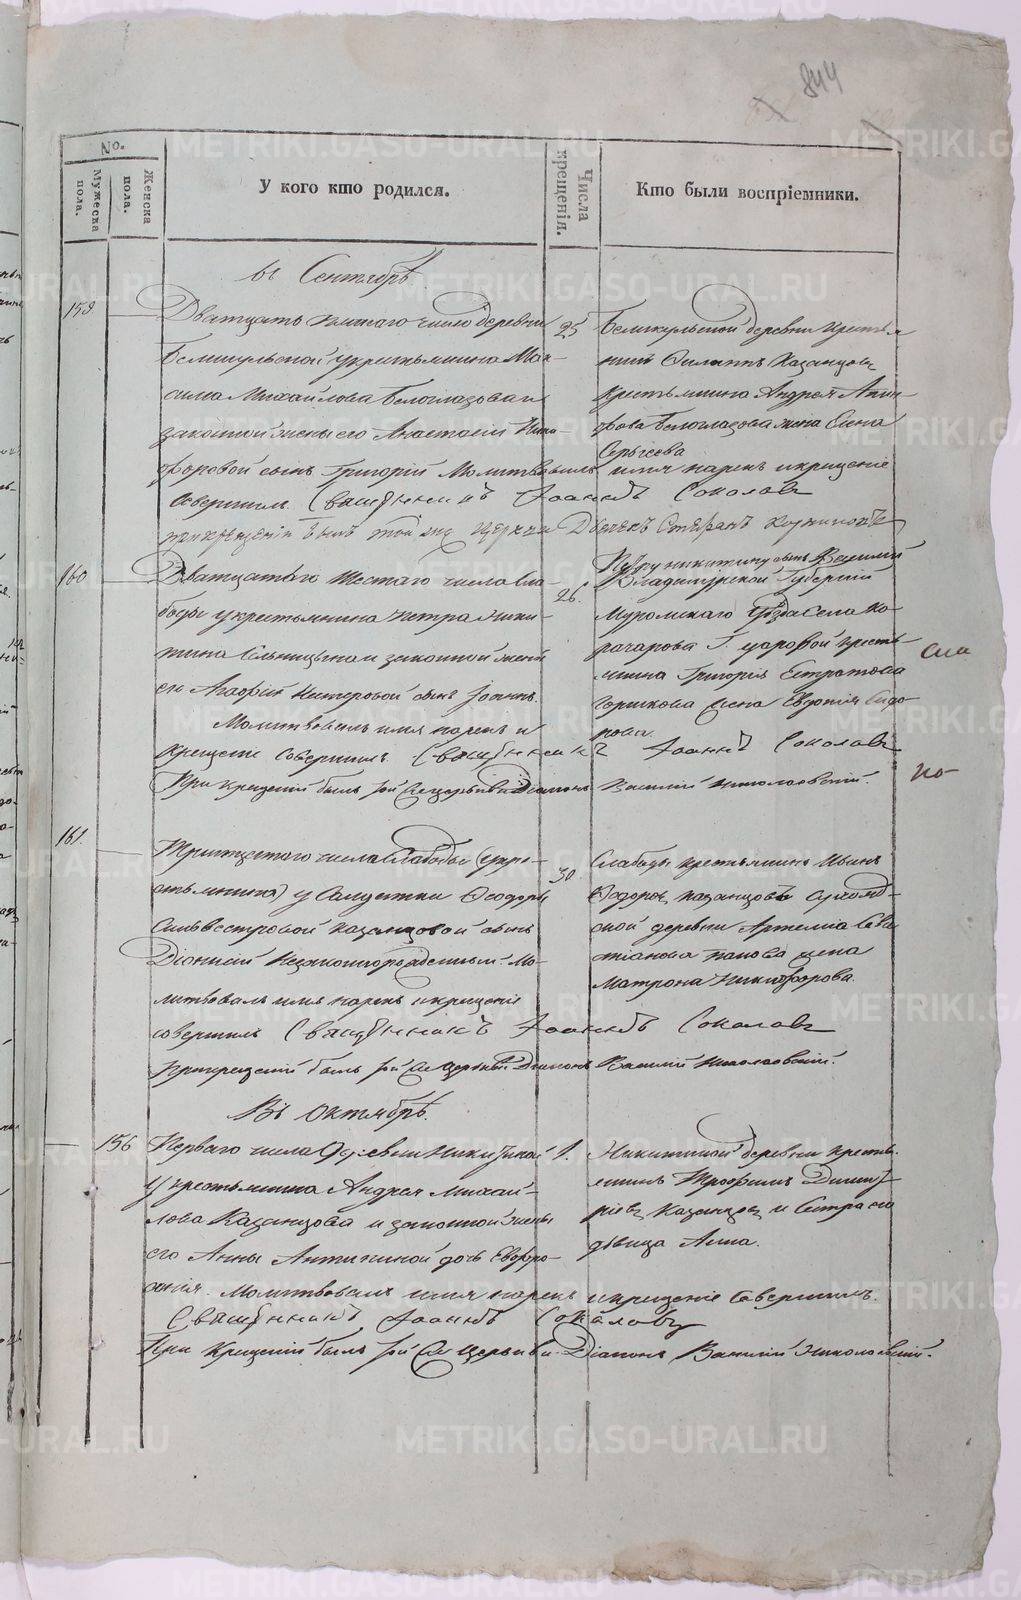 844
No.
Мужеска пола.
Женска пола.
У кого кто родился.
Числа крещенія.
Кто были воспріемники.
въ Сентябрѣ.
159
Дватцать пятаго число деревни
25
Белишульской у крестьянина Мак-
сима Михайлова Белоглазова и
законной жены его Анастасіи Ники-
форовой сынъ Григорій Молитвовалъ имя нарекъ и крещеніе
совершилъ Священникъ Іоаннъ Соколовъ
при крещеніи былъ той же церкви Дьячекъ Стефанъ
деревни крестья-
нинъ Филиппъ Казанцовъ
крестьянина Андрея
Белоглазова жена Елена
Сергѣева
160
Дватцатаго шестаго числа Сла-
26.
боды у крестьянина Петра Ники-
тина и законной жены
его Агафіи Нестеровой сынъ Іоаннъ.
Молитвовалъ имя нарекъ и
крещеніе совершилъ Священникъ Іоаннъ Соколовъ
При крещеніи былъ той же церкви Діаконъ Василій Николаевскій.
Владимирской Губерніи
Муромскаго Уѣзда села Ка-
рачарова Г. Уваровой кресть-
янина Григорія Естратова
Горшкова жена Евдокія Сидо-
рова.
161.
Тритцатого числа Слабоды (у кре-
30
стьянина) у Солдатки Ѳеодоры
Сильвестровой Казанцовой сынъ
Діонисій Незаконнорожденный. Мо-
литвовалъ имя нарекъ и крещеніе
совершилъ Священникъ Іоаннъ Соколовъ
при крещеніи былъ той же церкви Діаконъ Василій Николаевскій.
Слабоды крестьянинъ Иванъ
Ѳедоровъ Казанцовъ
деревни Артемія Сева-
стіанова Попова жена
Матрона Никифорова.
Въ Октябрѣ.
156
Перваго числа Деревни Никитиной
1.
у крестьянина Андрея Михай-
лова Казанцова и законной жены
его Анны Антипиной дочь Евфро-
синія. Молитвовалъ имя нарекъ и крещеніе совершилъ
Священникъ Іоаннъ Соколовъ
При крещеніи былъ той же церкви Діаконъ Василій Николаевскій.
Никитиной деревни кресть-
янинъ Трофимъ Димит-
ріевъ Казанцовъ и сестра его
дѣвица Анна.
METRIKI.GASO-URAL.RU